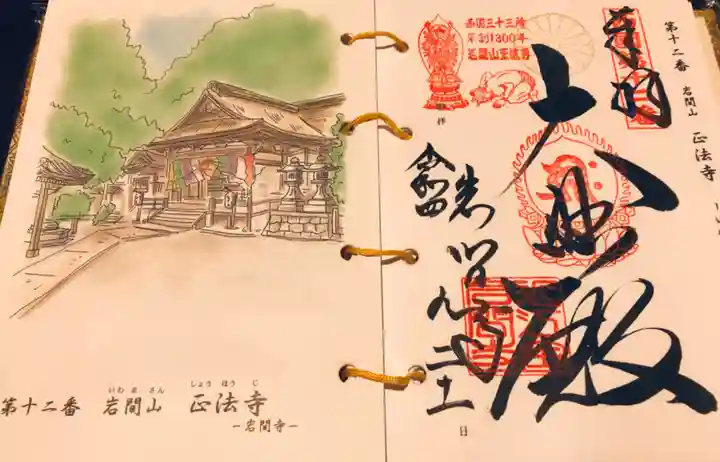 第十二番 岩間山 正法寺
奉拝
大悲殿
岩間寺
令和四
九 二十一日
西国三十三所
草創1300年
岩間山正法寺
いわ ま さん しょう ほう じ
第十二番 岩間山 正法寺
-岩間寺-